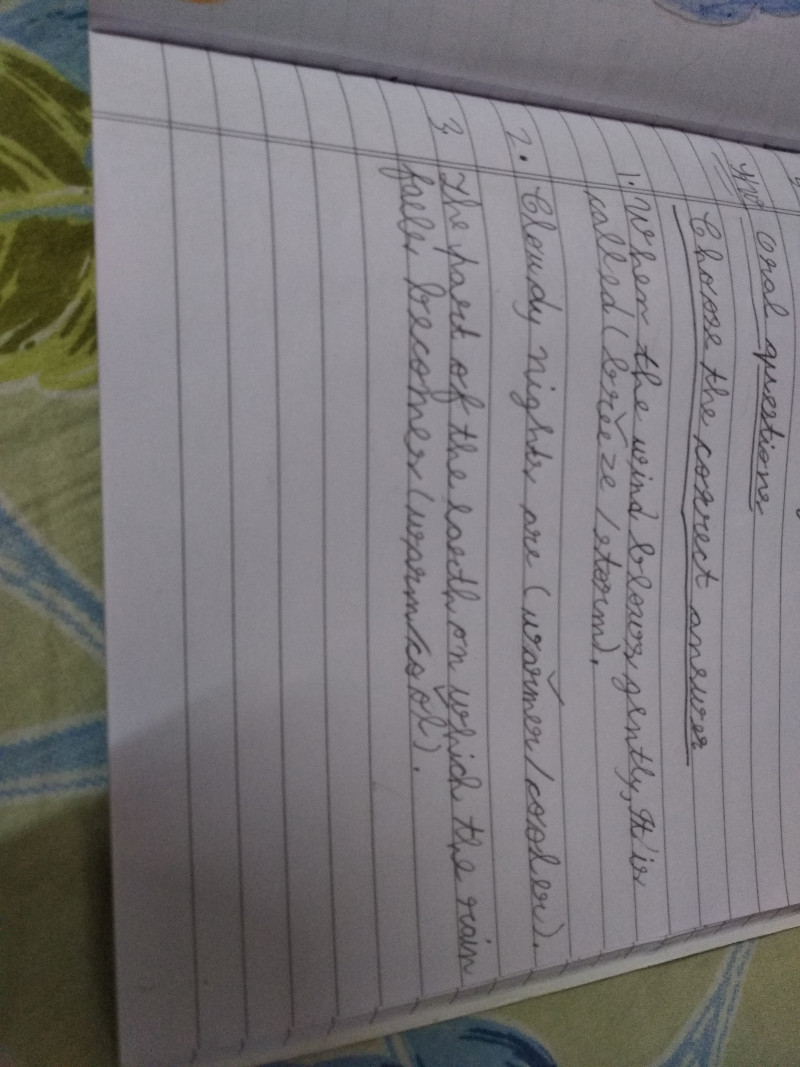 Oral questions
Choose the correct answer
1. When the wind blows gently, It is
called (breeze/storm).
2. Cloudy nights are (warmer/cooler).
3. The part of the earth on which the rain
falls, becomes (warm/cool).